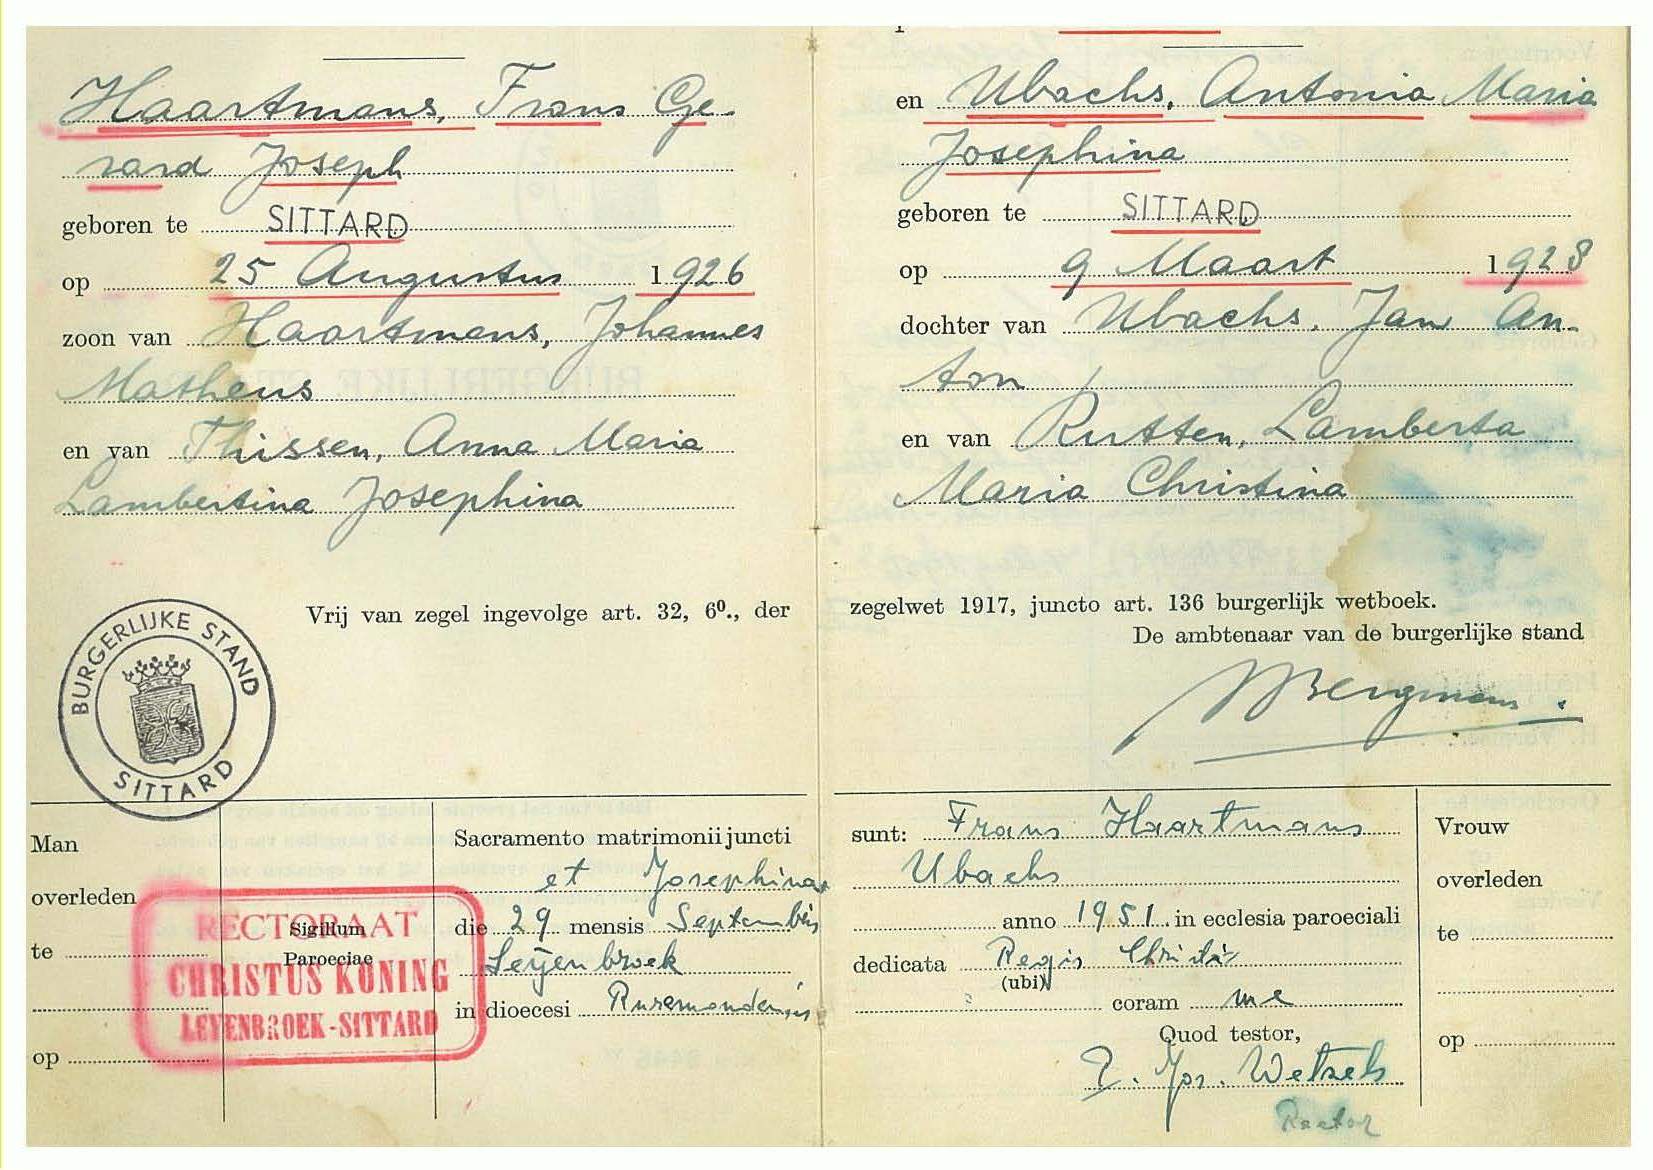 Haartmans, Frans Ge-
rard Joseph
geboren te SITTARD
op 25 Augustus 1926
zoon van Haartmans, Johannes
Matheus
en van Thissen, Anna Maria
Lambertina Josephina
en Ubachs, Antonia Maria
Josephina
geboren te SITTARD
op 9 Maart 1928
dochter van Ubachs, Jan An-
ton
en van Rutten, Lamberta
Maria Christina
Vrij van zegel ingevolge art. 32, 6⁰., der zegelwet 1917, juncto art. 136 burgerlijk wetboek.
De ambtenaar van de burgerlijke stand
Bergmans.
BURGERLIJKE STAND
SITTARD
Man
overleden
te
op
Sigillum
Paroeciae
RECTORAAT
CHRISTUS KONING
LEYENBROEK-SITTARD
Sacramento matrimonii juncti sunt: Frans Haartmans
et Josephina Ubachs
die 29 mensis Septembris anno 1951. in ecclesia paroeciali
Leijenbroek dedicata Regis Christi
(ubi)
in dioecesi Ruremondensis coram me
Quod testor,
P. Jos. Wetzels
Rector
Vrouw
overleden
te
op